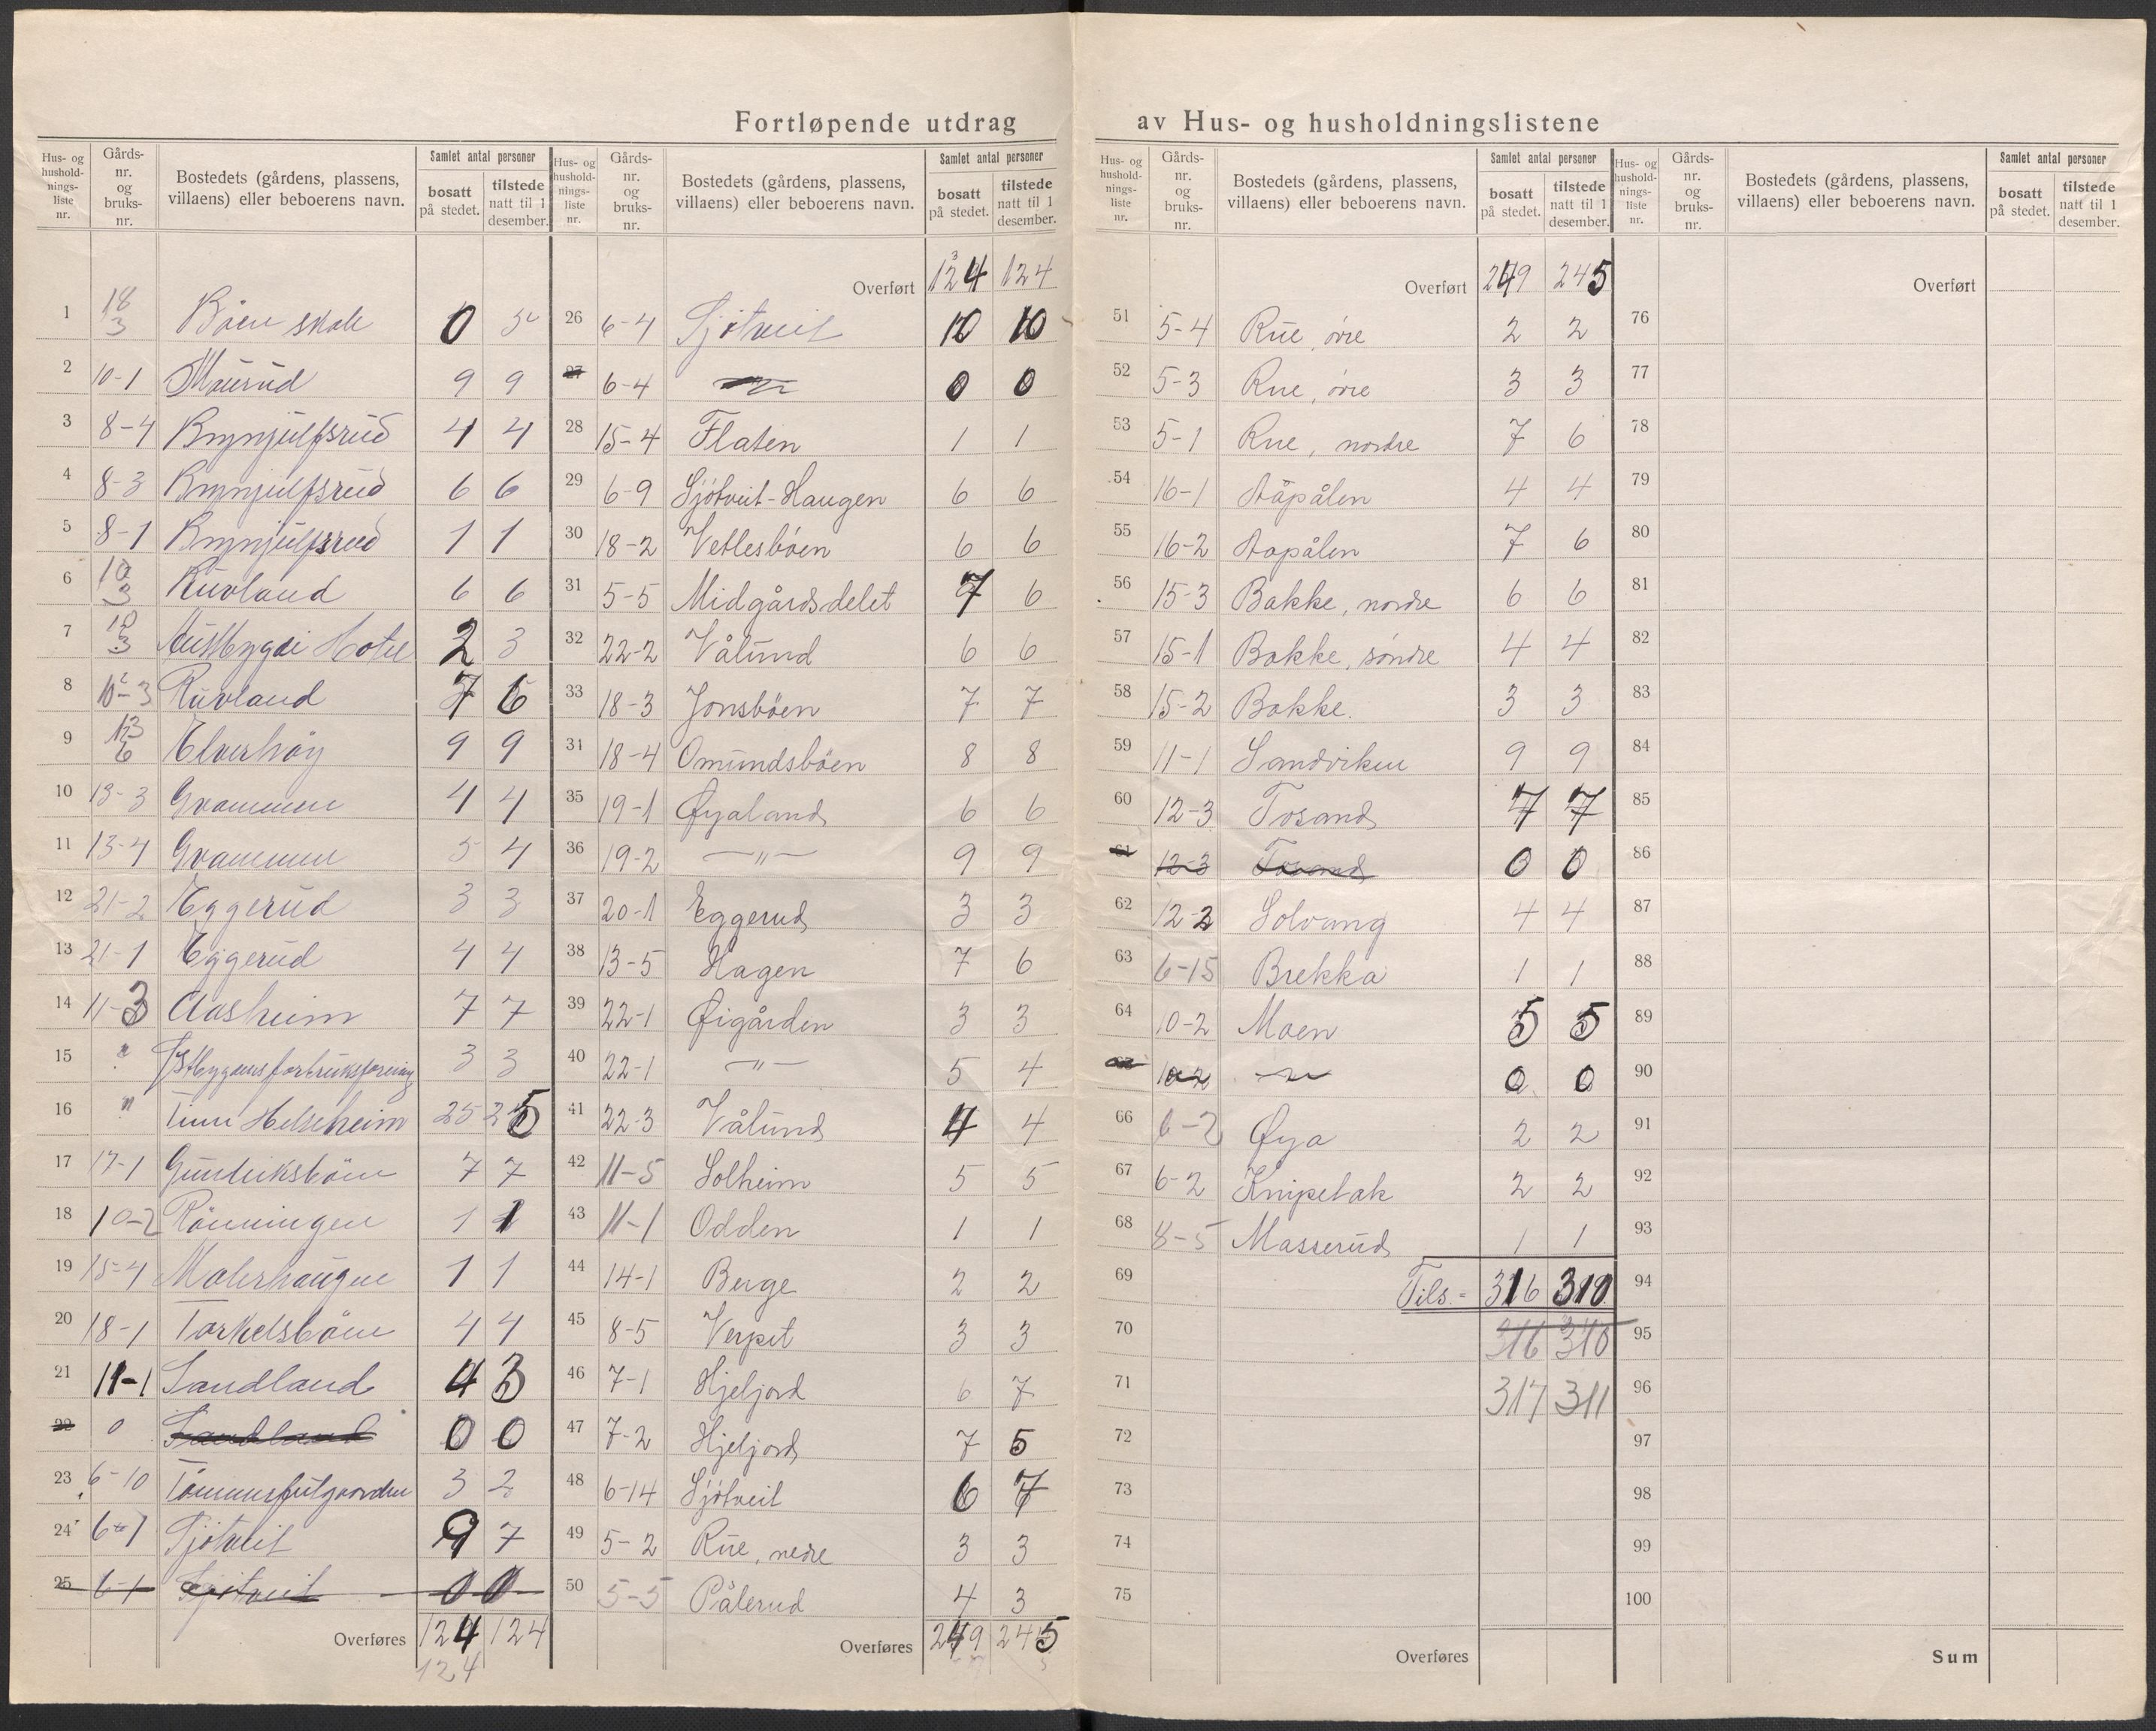 Fortløpende utdrag av Hus- og husholdningslistene
Hus- og husholdningsliste nr. | Gårds-nr. og bruks-nr. | Bostedets (gårdens, plassens, villaens) eller beboerens navn. | Samlet antal personer | bosatt på stedet. | tilstede natt til 1 desember.
1 18 3 Böen skole 0 5
2 10-1 Maurud 9 9
3 8-4 Brynjulfsrud 4 4
4 8-3 Brynjulfsrud 6 6
5 8-1 Brynjulfsrud 1 1
6 10 3 Ruvland 6 6
7 10 3 Austbygdi Hotel 2 3
8 10-3 Ruvland 7 6
9 13 6 Elverhöy 9 9
10 13-3 Gvammen 4 4
11 13-4 Gvammen 5 4
12 21-2 Eggerud 3 3
13 21-1 Eggerud 4 4
14 11-3 Aasheim 7 7
15 " 3 3
16 " Tinn Helseheim 25 25
17 17-1 Gunleiksböen 7 7
18 10-2 Rönningen 1 1
19 15-4 Malerhaugen 1 1
20 18-1 Torkelsböen 4 4
21 11-1 Sandland 4 3
22 0 Sandland 0 0
23 6-10 3 2
24 6-1 Sjötveit 9 7
25 6-1 Sjötveit 0 0
Overføres 124 124
124
Hus- og husholdningsliste nr. | Gårds-nr. og bruks-nr. | Bostedets (gårdens, plassens, villaens) eller beboerens navn. | Samlet antal personer | bosatt på stedet. | tilstede natt til 1 desember.
Overført 124 124
26 6-4 Sjötveit 10 10
27 6-4 —"— 0 0
28 15-4 Flaten 1 1
29 6-9 Sjötveit-Haugen 6 6
30 18-2 Vetlesböen 6 6
31 5-5 Midgårdsdelet 7 6
32 22-2 Vålund 6 6
33 18-3 Jonsböen 7 7
31 18-4 Omundsböen 8 8
35 19-1 Øyaland 6 6
36 19-2 —"— 9 9
37 20-1 Eggerud 3 3
38 13-5 Hagen 7 6
39 22-1 Øigården 3 3
40 22-1 —"— 5 4
41 22-3 Vålund 4 4
42 11-5 Solheim 5 5
43 11-1 Odden 1 1
44 14-1 Berge 2 2
45 8-5 Verpet 3 3
46 7-1 Hjeljord 6 7
47 7-2 Hjeljord 7 5
48 6-14 Sjötveit 6 7
49 5-2 Rue, nedre 3 3
50 5-5 Pålerud 4 3
Overføres 249 245
Hus- og husholdningsliste nr. | Gårds-nr. og bruks-nr. | Bostedets (gårdens, plassens, villaens) eller beboerens navn. | Samlet antal personer | bosatt på stedet. | tilstede natt til 1 desember.
Overført 249 245
51 5-4 Rue, övre 2 2
52 5-3 Rue, övre 3 3
53 5-1 Rue, nordre 7 6
54 16-1 Aapålen 4 4
55 16-2 Aapålen 7 6
56 15-3 Bakke, nordre 6 6
57 15-1 Bakke, söndre 4 4
58 15-2 Bakke. 3 3
59 11-1 Sandviken 9 9
60 12-3 Tosand 7 7
61 12-3 Tosand 0 0
62 12-2 Solvang 4 4
63 6-15 Brekka 1 1
64 10-2 Moen 5 5
10-2 —"— 0 0
66 6-2 Øya 2 2
67 6-2 Knipetak 2 2
68 8-5 Masserud 1 1
69 Tils.- 316 310
70 316 310
71 317 311
72
73
74
75
Overføres
Hus- og husholdningsliste nr. | Gårds-nr. og bruks-nr. | Bostedets (gårdens, plassens, villaens) eller beboerens navn. | Samlet antal personer | bosatt på stedet. | tilstede natt til 1 desember.
Overført
76
77
78
79
80
81
82
83
84
85
86
87
88
89
90
91
92
93
94
95
96
97
98
99
100
Sum